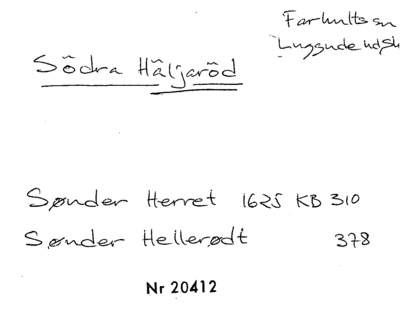 Farhults sn
Luggude hd Sk
Södra Häljaröd
Sønder Herret 1625 KB 310
Sønder Hellerødt 378
Nr 20412